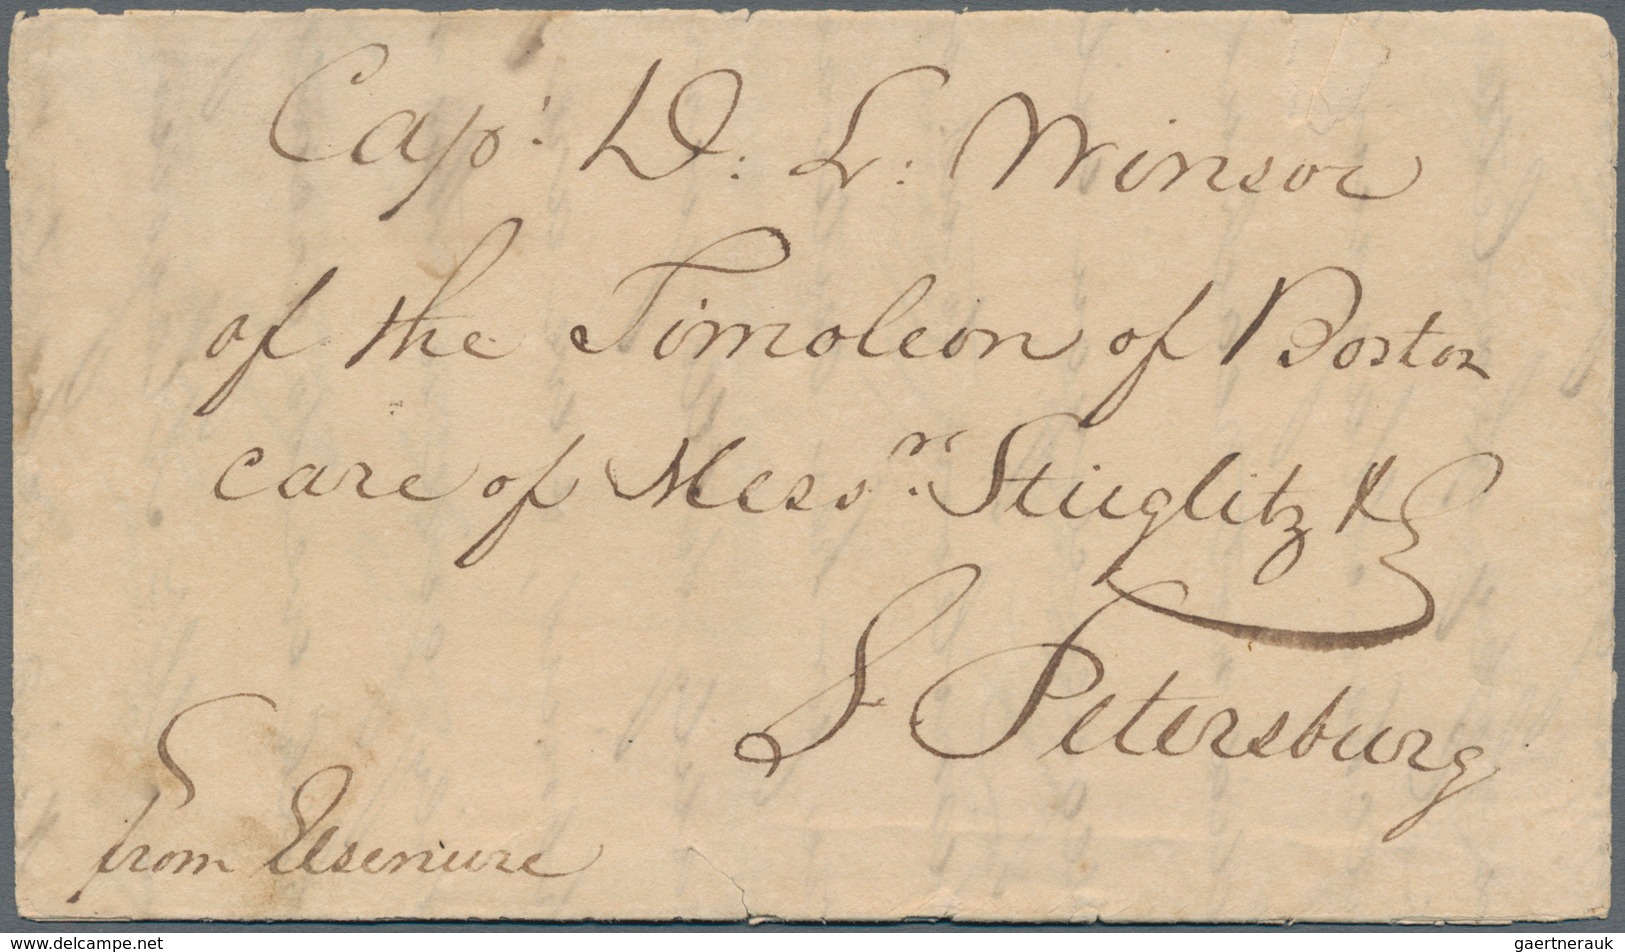 Capt: D: L: Winsor
of the Timoleon of Boston
care of Messrs: Stieglitz & Co
St Petersburg
from Elseniure
www.delcampe.net
gaertnerauk